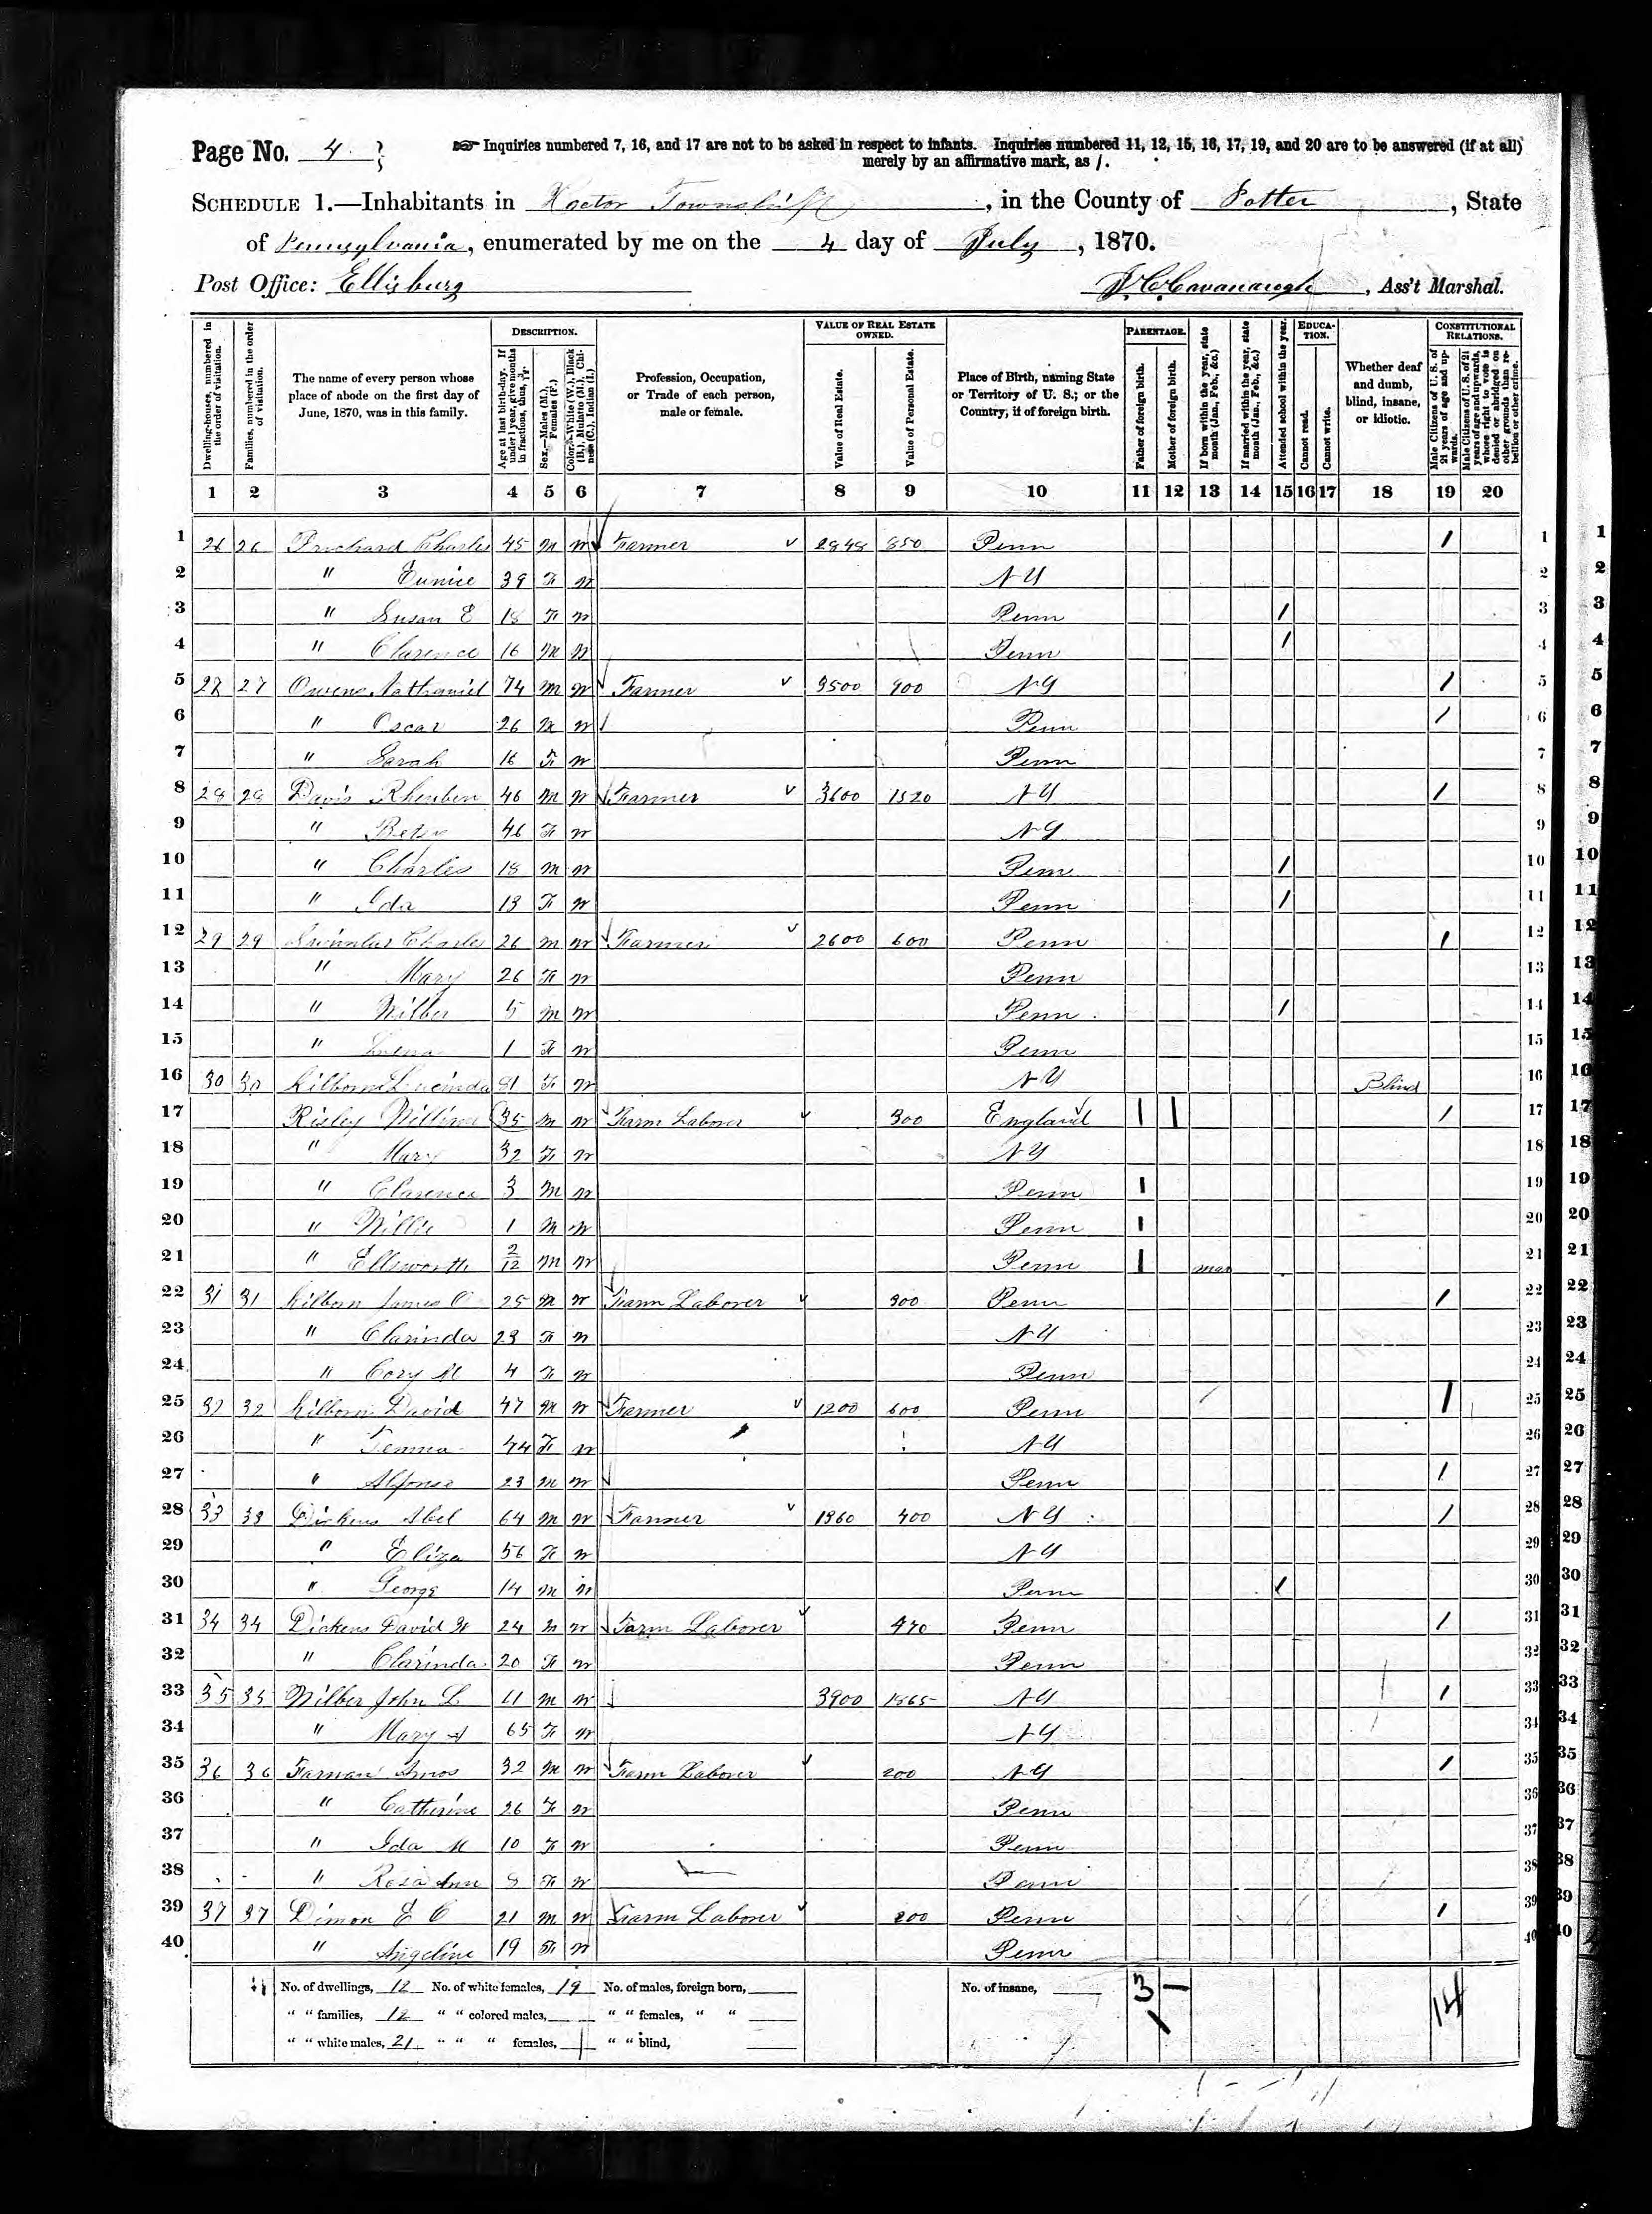 Page No. 4
Inquiries numbered 7, 16, and 17 are not to be asked in respect to infants. Inquiries numbered 11, 12, 15, 16, 17, 19, and 20 are to be answered (if at all)
merely by an affirmative mark, as /.
SCHEDULE 1.—Inhabitants in Hector Township, in the County of Potter, State
of Pennsylvania, enumerated by me on the 4 day of July, 1870.
Post Office: Ellisburg J. C. Cavanaugh, Ass't Marshal.
Dwelling-houses, numbered in the order of visitation.
Families, numbered in the order of visitation.
The name of every person whose place of abode on the first day of June, 1870, was in this family.
DESCRIPTION.
Age at last birth-day. If under 1 year, give months in fractions, thus, 3/12.
Sex.—Males (M.), Females (F.)
Color.—White (W.), Black (B.), Mulatto (M.), Chinese (C.), Indian (I.)
Profession, Occupation, or Trade of each person, male or female.
VALUE OF REAL ESTATE OWNED.
Value of Real Estate.
Value of Personal Estate.
Place of Birth, naming State or Territory of U. S.; or the Country, if of foreign birth.
PARENTAGE.
Father of foreign birth.
Mother of foreign birth.
If born within the year, state month (Jan., Feb., &c.)
If married within the year, state month (Jan., Feb., &c.)
Attended school within the year.
EDUCATION.
Cannot read.
Cannot write.
Whether deaf and dumb, blind, insane, or idiotic.
CONSTITUTIONAL RELATIONS.
Male Citizens of U. S. of 21 years of age and upwards.
Male Citizens of U. S. of 21 years of age and upwards, whose right to vote is denied or abridged on other grounds than rebellion or other crime.
1 2 3 4 5 6 7 8 9 10 11 12 13 14 15 16 17 18 19 20
1 26 26 Prichard Charles 45 M W Farmer 2848 850 Penn / 1
2 " Eunice 39 F W N Y 2
3 " Susan E 18 F W Penn / 3
4 " Clarence 16 M W Penn / 4
5 27 27 Owens Nathaniel 74 M W Farmer 3500 900 N Y / 5
6 " Oscar 26 M W Penn / 6
7 " Sarah 16 F W Penn 7
8 28 28 Davis Rheuben 46 M W Farmer 3600 1520 N Y / 8
9 " Betsy 46 F W N Y 9
10 " Charles 18 M W Penn / 10
11 " Ida 13 F W Penn / 11
12 29 29 Charles 26 M W Farmer 2600 600 Penn / 12
13 " Mary 26 F W Penn 13
14 " Wilber 5 M W Penn / 14
15 " 1 F W Penn 15
16 30 30 Kilborn Lucinda 81 F W N Y Blind 16
17 Risley William 35 M W Farm Laborer 300 England / / / 17
18 " Mary 32 F W N Y 18
19 " Clarence 3 M W Penn / 19
20 " Willie 1 M W Penn / 20
21 " Ellsworth 2/12 M W Penn / Mar 21
22 31 31 Kilborn James C 25 M W Farm Laborer 300 Penn / 22
23 " Clarinda 23 F W N Y 23
24 " Cory M 4 F W Penn 24
25 32 32 Kilborn David 47 M W Farmer 1200 600 Penn / 25
26 " 44 F W N Y 26
27 " Alfonse 23 M W Penn / 27
28 33 33 Dickens Abel 64 M W Farmer 1360 400 N Y / 28
29 " Eliza 56 F W N Y 29
30 " George 14 M W Penn / 30
31 34 34 Dickens David W 24 M W Farm Laborer 470 Penn / 31
32 " Clarinda 20 F W Penn 32
33 35 35 Wilber John L M W 3900 1865 N Y / 33
34 " Mary A 65 F W N Y 34
35 36 36 Farnan Amos 32 M W Farm Laborer 200 N Y / 35
36 " Catherine 26 F W Penn 36
37 " Ida M 10 F W Penn 37
38 " Rosa Ann 8 F W Penn 38
39 37 37 Dimon E C 21 M W Farm Laborer 200 Penn / 39
40 " Angeline 19 F W Penn 40
No. of dwellings, 12 No. of white females, 19 No. of males, foreign born, No. of insane, 3 — 14
" " families, 12 " " colored males, " " females, " "
" " white males, 21 " " " females, " " blind,